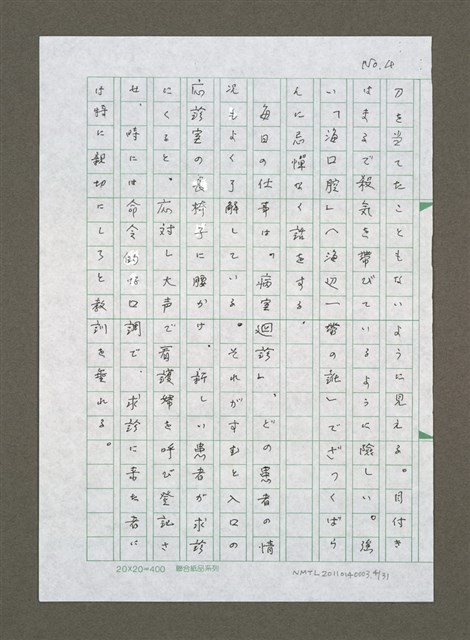 No.4
刀を当てたこともないように見える。目付き
はまるで殺気を帯びているように険しい。強
いて「海口腔」(海辺一帯の訛)でざつくばら
んに忌憚なく話をする。
毎日の仕事は「病室廻診」、どの患者の情
況もよく了解している。それがすむと入口の
応診室の長椅子に腰かけ、新しい患者が求診
にくると、応対し大声で看護婦を呼び登記さ
せ、時には命令的な口調で、求診に来た者に
は特に親切にしろと教訓を垂れる。
20X20=400 聯合紙品系列
NMTL20110140103.4/31